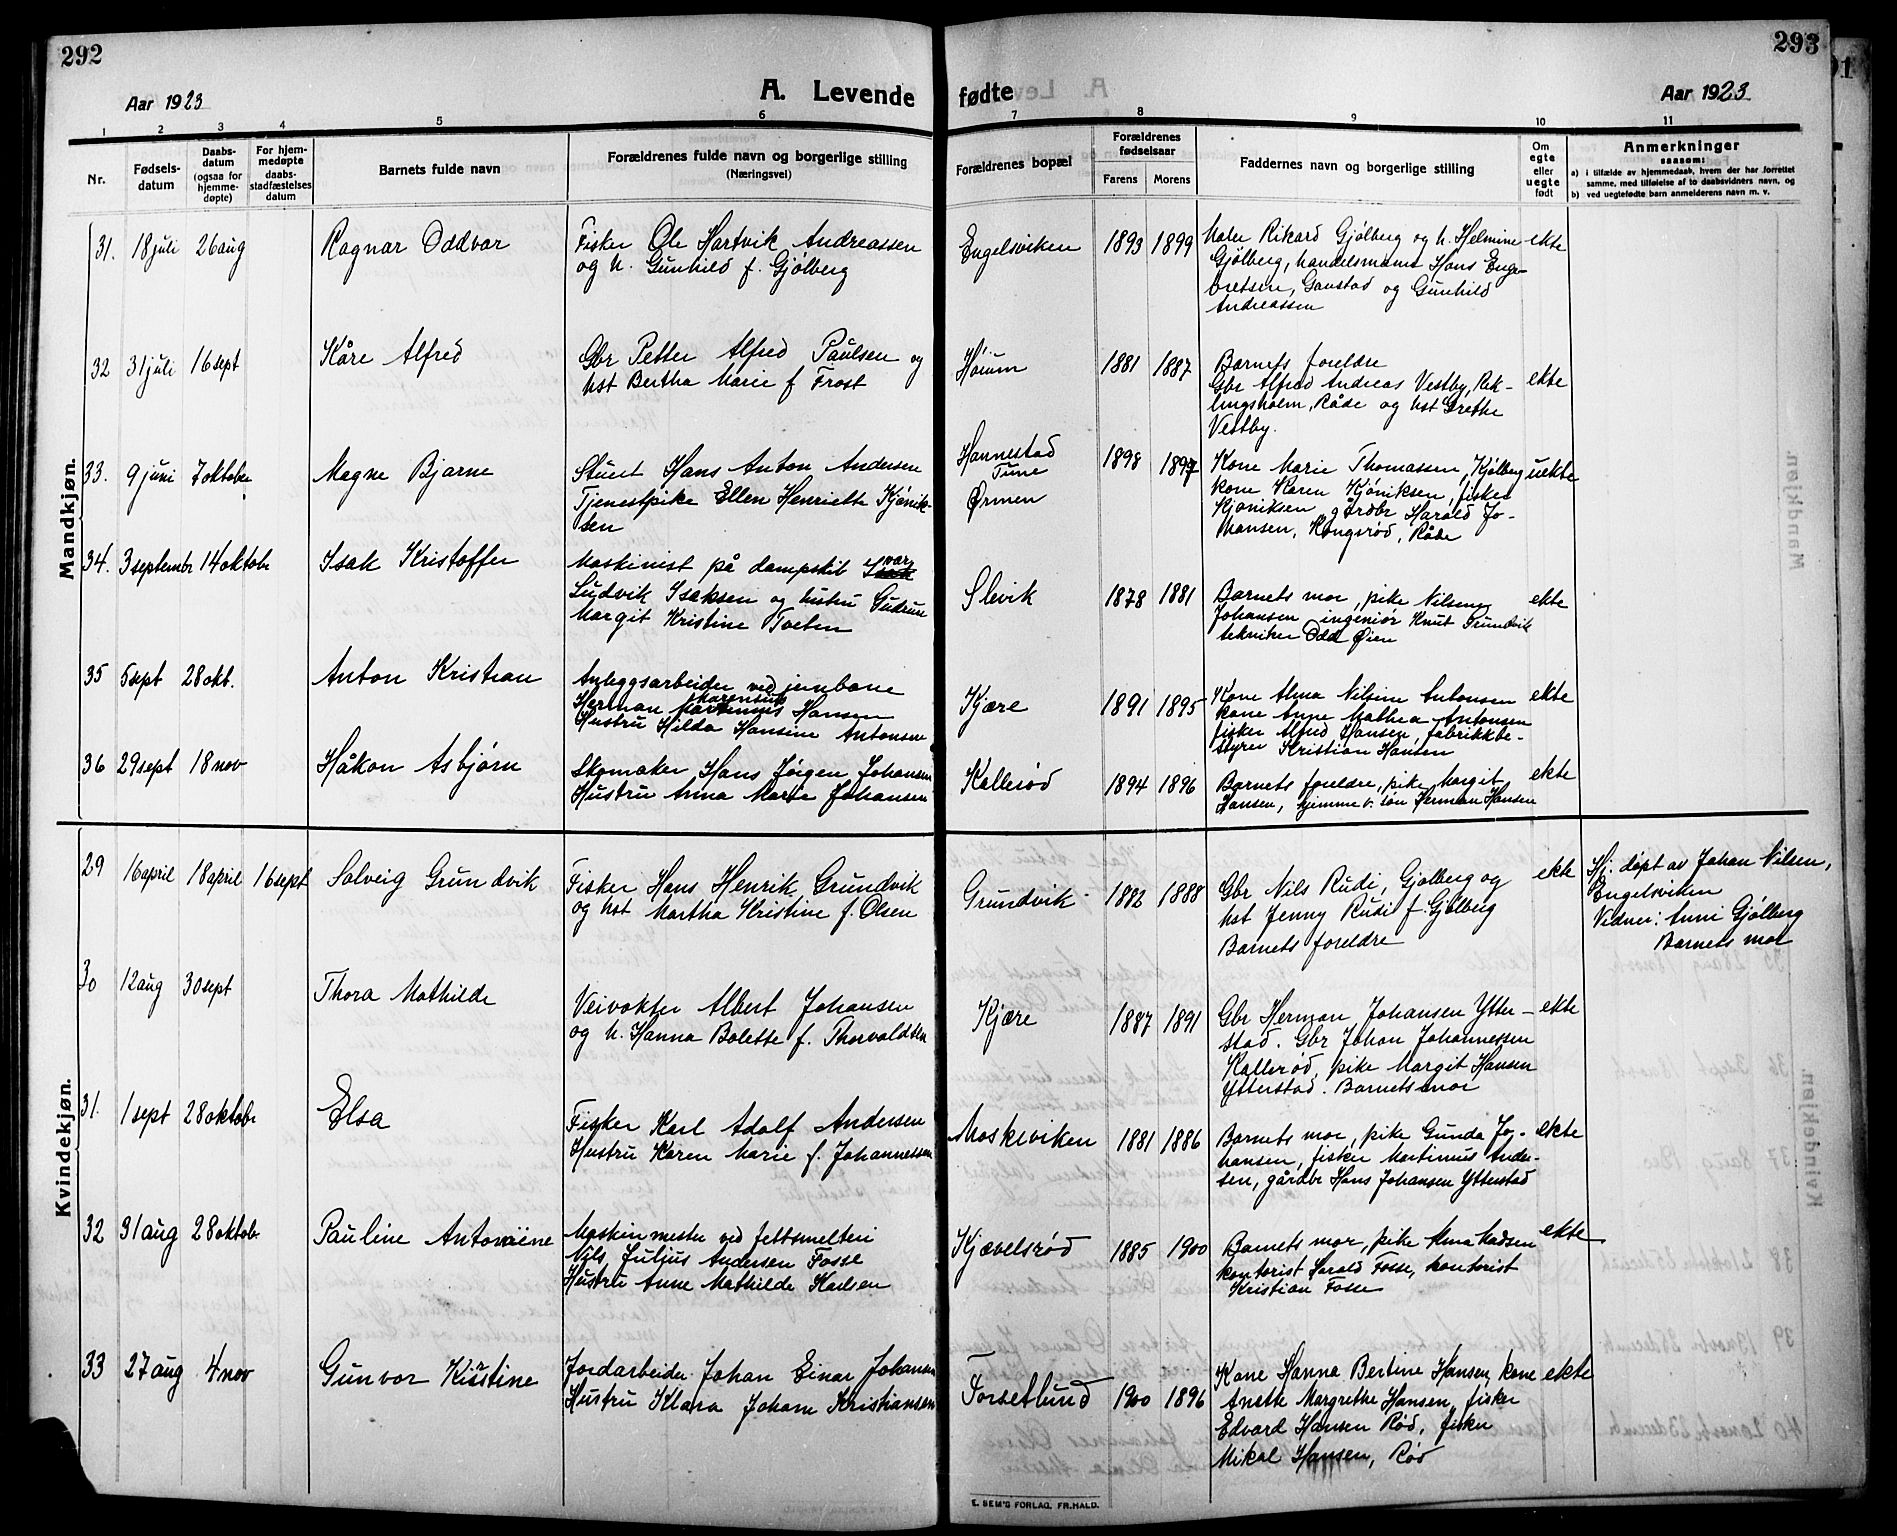 292
293
Aar 1923
A. Levende fødte
Aar 1923
1 2 3 4 5 6 7 8 9 10 11
Nr.
Fødsels-
datum
Daabs-
datum
(ogsaa for
hjemme-
døpte)
For hjem-
medøpte
daabs-
stadfæstelses
datum
Barnets fulde navn
Forældrenes fulde navn og borgerlige stilling
(Næringsvei)
Forældrenes bopæl
Forældrenes
fødselsaar
Farens Morens
Faddernes navn og borgerlige stilling
Om
egte
eller
uegte
født
Anmerkninger
saasom:
a) i tilfælde av hjemmedaab, hvem der har forrettet
samme, med tilføielse af to daabsvidners navn, og
b) ved uegtefødte barn anmelderens navn m. v.
Mandkjøn.
31. 18 juli 26 aug Ragnar Oddvar
Fisker Ole Hartvik Andreassen
og h. Gunhild f. Gjølberg
Engelsviken 1893 1899
Maler Rikard Gjølberg og h. Helmine
Gjølberg, handelsmann Hans Enge-
bretsen, Ganstad og Gunhild
Andreassen
ekte
32 31 juli 16 sept Kåre Alfred
Gbr Petter Alfred Paulsen og
hst Bertha Marie f Frost
Høium 1881 1887
Barnets foreldre
Gbr Alfred Andreas Vestby, Rik-
lingsholm, Råde og hst Grethe
Vestby.
ekte
33. 9 juni 7 oktober Magne Bjarne
Stuert Hans Anton Andersen
Tjenestpike Ellen Henriette Kjønik-
sen
Hannestad
Tune
Ørmen
1898 1897
Kone Marie Thomassen, Kjølberg
kone Karen Kjøniksen, fisker
Kjøniksen gårdbr Harald Jo-
hansen, Kongsrød, Råde
uekte
34. 3 septembr 14 oktobr Isak Kristoffer
Maskinist på dampskib Ivar
Ludvik Isaksen og hustru Gudrun
Margit Kristine Tveten
Slevik 1878 1881
Barnets mor, pike Nilsine
Johansen ingeniør Knut Grundvik
tekniker Odd Øien
ekte
35 5 sept 28 okt. Anton Kristian
Anleggsarbeider ved jernbane
Herman Marentius Hansen
Hustru Hilda Hansine Antonsen
Kjære 1891 1895
Kone Alma Nilsine Antonsen
kone Anne Mathea Antonsen
fisker Alfred Hansen, fabrikkbe-
styrer Kristian Hansen
ekte
36 29 sept 18 nov Håkon Asbjørn
Skomaker Hans Jørgen Johansen
Hustru Anna Marie Johansen
Kallerød 1894 1896
Barnets foreldre, pike Margit
Hansen, hjemmev. søn Herman Hansen
ekte
Kvindekjøn.
29 16 april 18 april 16 sept Solveig Grundvik
Fisker Hans Henrik Grundvik
og hst Martha Kristine f. Olsen
Grundvik 1882 1888
Gbr Nils Rudi, Gjølberg og
hst Jenny Rudi f. Gjølberg
Barnets foreldre
ekte
Hj. døpt av Johan Nilsen,
Engelsviken
Vidner: Anni Gjølberg
Barnets mor
30 12 aug 30 sept Thora Mathilde
Veivokter Albert Johansen
og h. Hanna Bolette f. Thorvaldsen
Kjære 1887 1891
Gbr Herman Johansen Ytter-
stad. Gbr Johan Johannessen
Kallerød, pike Margit Hansen
Ytterstad. Barnets mor
ekte
31. 1 sept 28 oktobr Elsa
Fisker Karl Adolf Andersen
Hustru Karen Marie f. Johannessen
Moskeviken 1881 1886
Barnets mor, pike Gunda Jo-
hansen, fisker Martinius Ander-
sen, gårdbr Hans Johansen Ytterstad
ekte
32 31 aug 28 oktobr Pauline Antoniine
Maskinmester ved fettsmelteri
Nils Julius Andersen Fosse
Hustru Anne Mathilde Karlsen
Kjævelsrød 1885 1900
Barnets mor, pike Alma Madsen
kontorist Harald Fosse, kontorist
Kristian Fosse
ekte
33 27 aug 4 nov Gunvor Kirstine
Jordarbeider Johan Einar Johansen
Hustru Klara Johane Kristiansen
Torsetlund 1900 1896
Kone Hanna Bertine Hansen, kone
Anette Margrethe Hansen, fisker
Edvard Hansen Rød, fisker
Mikal Hansen, Rød
ekte
E. SEM'S FORLAG, FR.HALD.